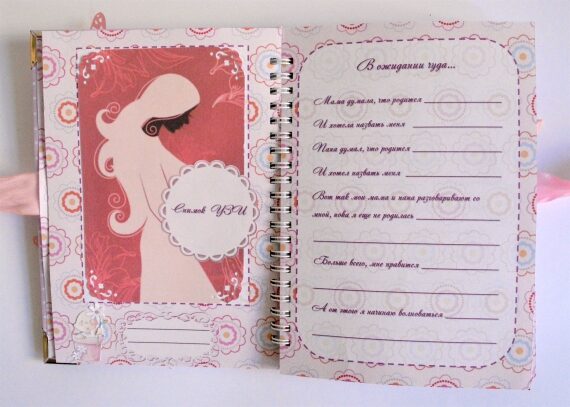 Снимок УЗИ
В ожидании чуда...
Мама думала, что родится
И хотела назвать меня
Папа думал, что родится
И хотел назвать меня
Вот так мои мама и папа разговаривают со
мной, пока я еще не родилась
Больше всего, мне нравится
А от этого я начинаю волноваться